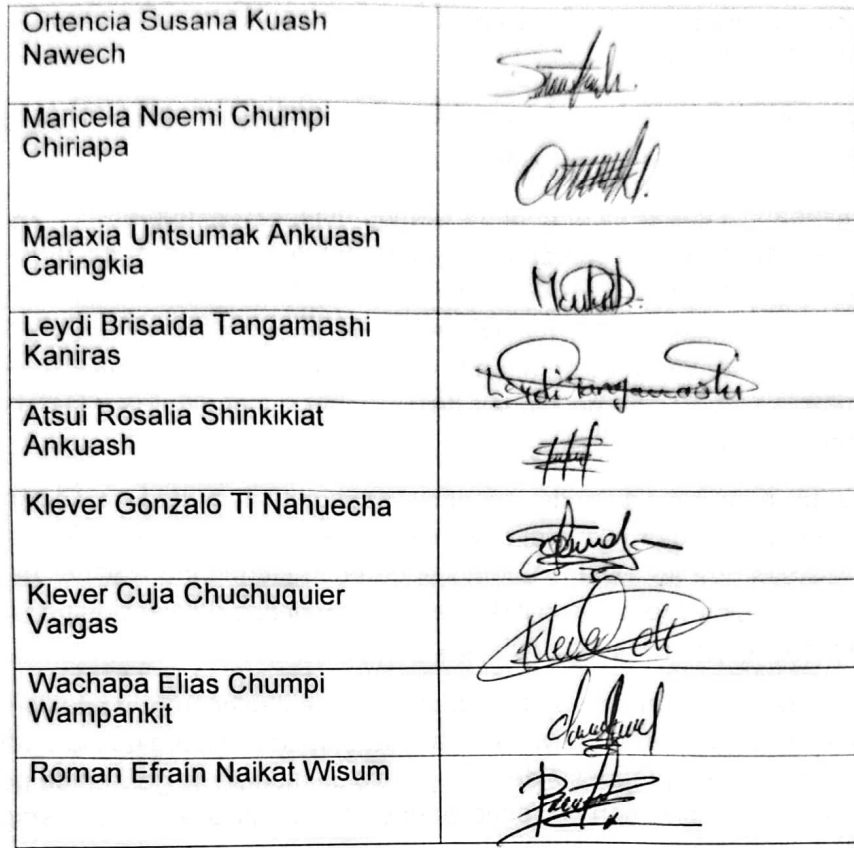 Ortencia Susana Kuash
Nawech
Maricela Noemi Chumpi
Chiriapa
Malaxia Untsumak Ankuash
Caringkia
Leydi Brisaida Tangamashi
Kaniras
Leydi Tangamashi
Atsui Rosalia Shinkikiat
Ankuash
Klever Gonzalo Ti Nahuecha
Klever Cuja Chuchuquier
Vargas
Klever
Wachapa Elias Chumpi
Wampankit
Roman Efraín Naikat Wisum